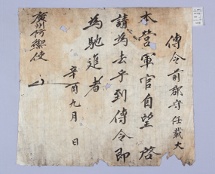 傳令前都守任載大
本營軍官自望 啓
請爲去乎到傳令即
爲馳進者
辛 九月 日
廣州防禦使